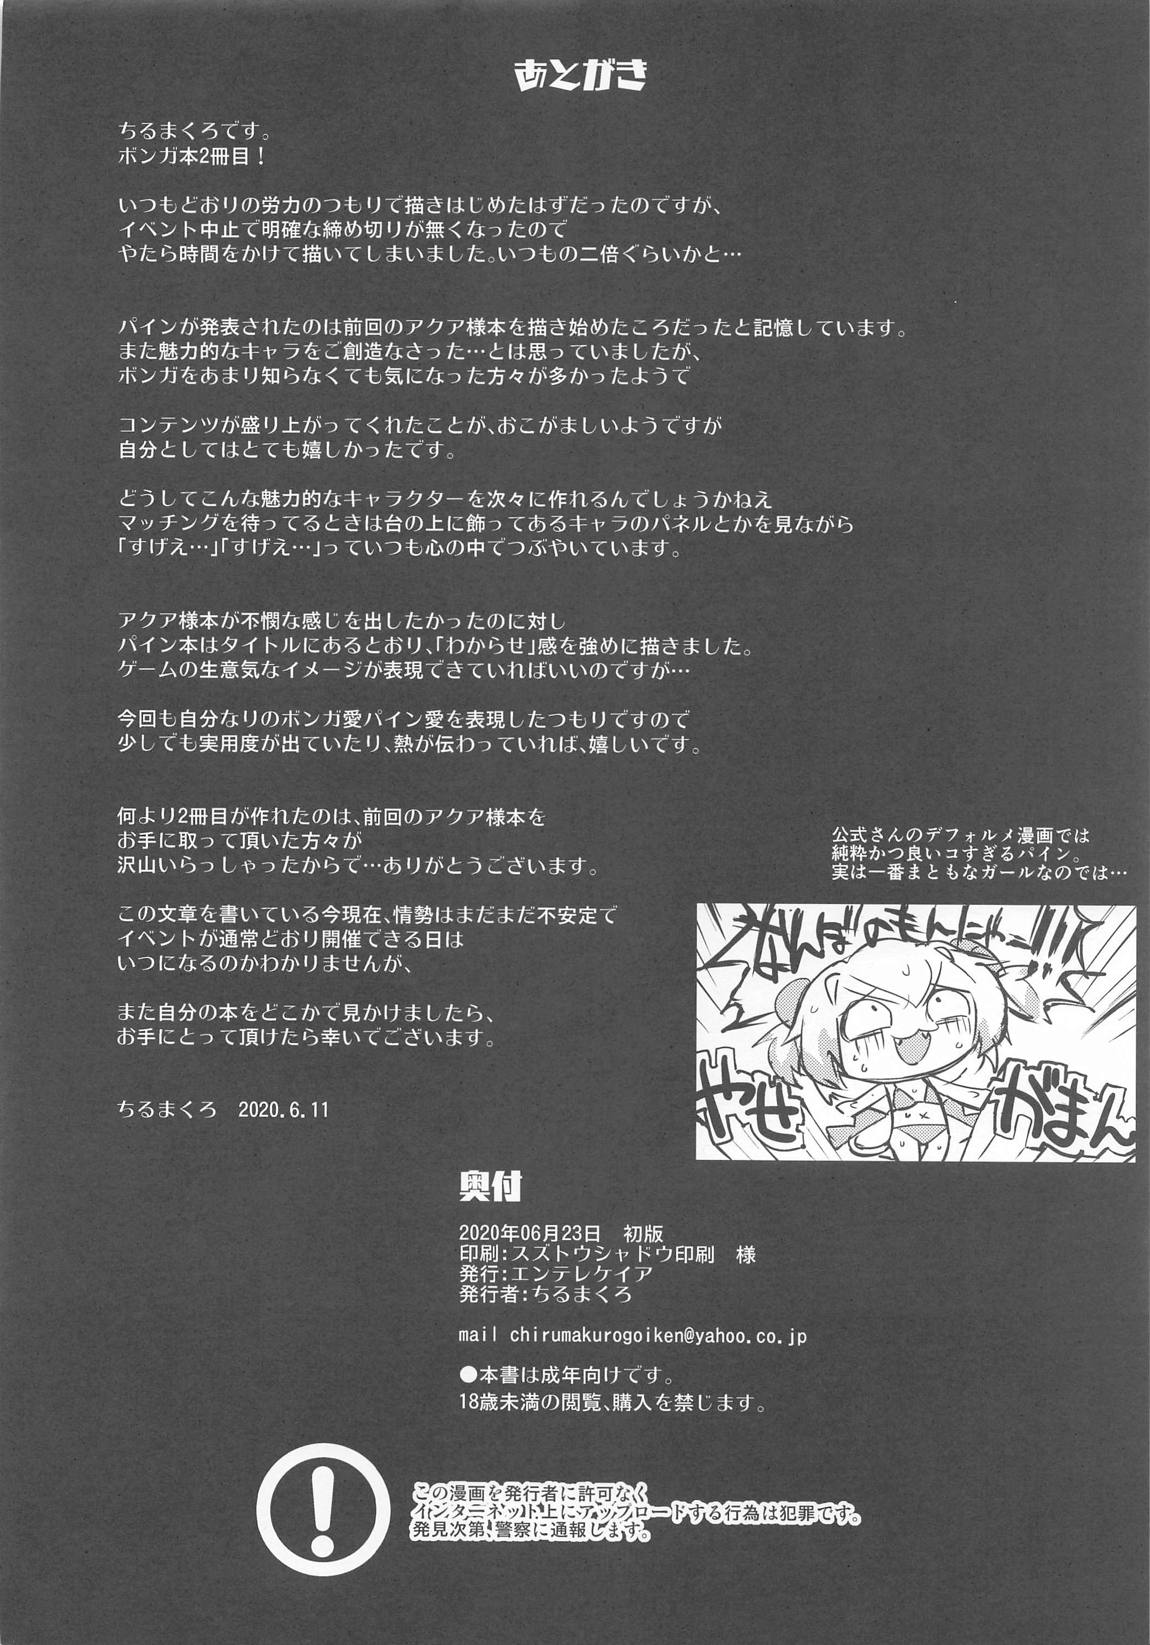 あとがき
ちるまくろです。
ボンガ本2冊目！
いつもどおりの労力のつもりで描きはじめたはずだったのですが、
イベント中止で明確な締め切りが無くなったので
やたら時間をかけて描いてしまいました。いつもの二倍ぐらいかと…
パインが発表されたのは前回のアクア様本を描き始めたころだったと記憶しています。
また魅力的なキャラをご創造なさった…とは思っていましたが、
ボンガをあまり知らなくても気になった方々が多かったようで
コンテンツが盛り上がってくれたことが、おこがましいようですが
自分としてはとても嬉しかったです。
どうしてこんな魅力的なキャラクターを次々に作れるんでしょうかねえ
マッチングを待ってるときは台の上に飾ってあるキャラのパネルとかを見ながら
「すげえ…」「すげえ…」っていつも心の中でつぶやいています。
アクア様本が不憫な感じを出したかったのに対し
パイン本はタイトルにあるとおり、「わからせ」感を強めに描きました。
ゲームの生意気なイメージが表現できていればいいのですが…
今回も自分なりのボンガ愛パイン愛を表現したつもりですので
少しでも実用度が出ていたり、熱が伝わっていれば、嬉しいです。
何より2冊目が作れたのは、前回のアクア様本を
お手に取って頂いた方々が
沢山いらっしゃったからで…ありがとうございます。
この文章を書いている今現在、情勢はまだまだ不安定で
イベントが通常どおり開催できる日は
いつになるのかわかりませんが、
また自分の本をどこかで見かけましたら、
お手にとって頂けたら幸いでございます。
ちるまくろ　2020.6.11
公式さんのデフォルメ漫画では
純粋かつ良いコすぎるパイン。
実は一番まともなガールなのでは…
なんぼのもんにゃー!!!
やせ
がまん
奥付
2020年06月23日　初版
印刷:スズトウシャドウ印刷　様
発行:エンテレケイア
発行者:ちるまくろ
mail chirumakurogoiken@yahoo.co.jp
●本書は成年向けです。
18歳未満の閲覧、購入を禁じます。
この漫画を発行者に許可なく
インターネット上にアップロードする行為は犯罪です。
発見次第、警察に通報します。